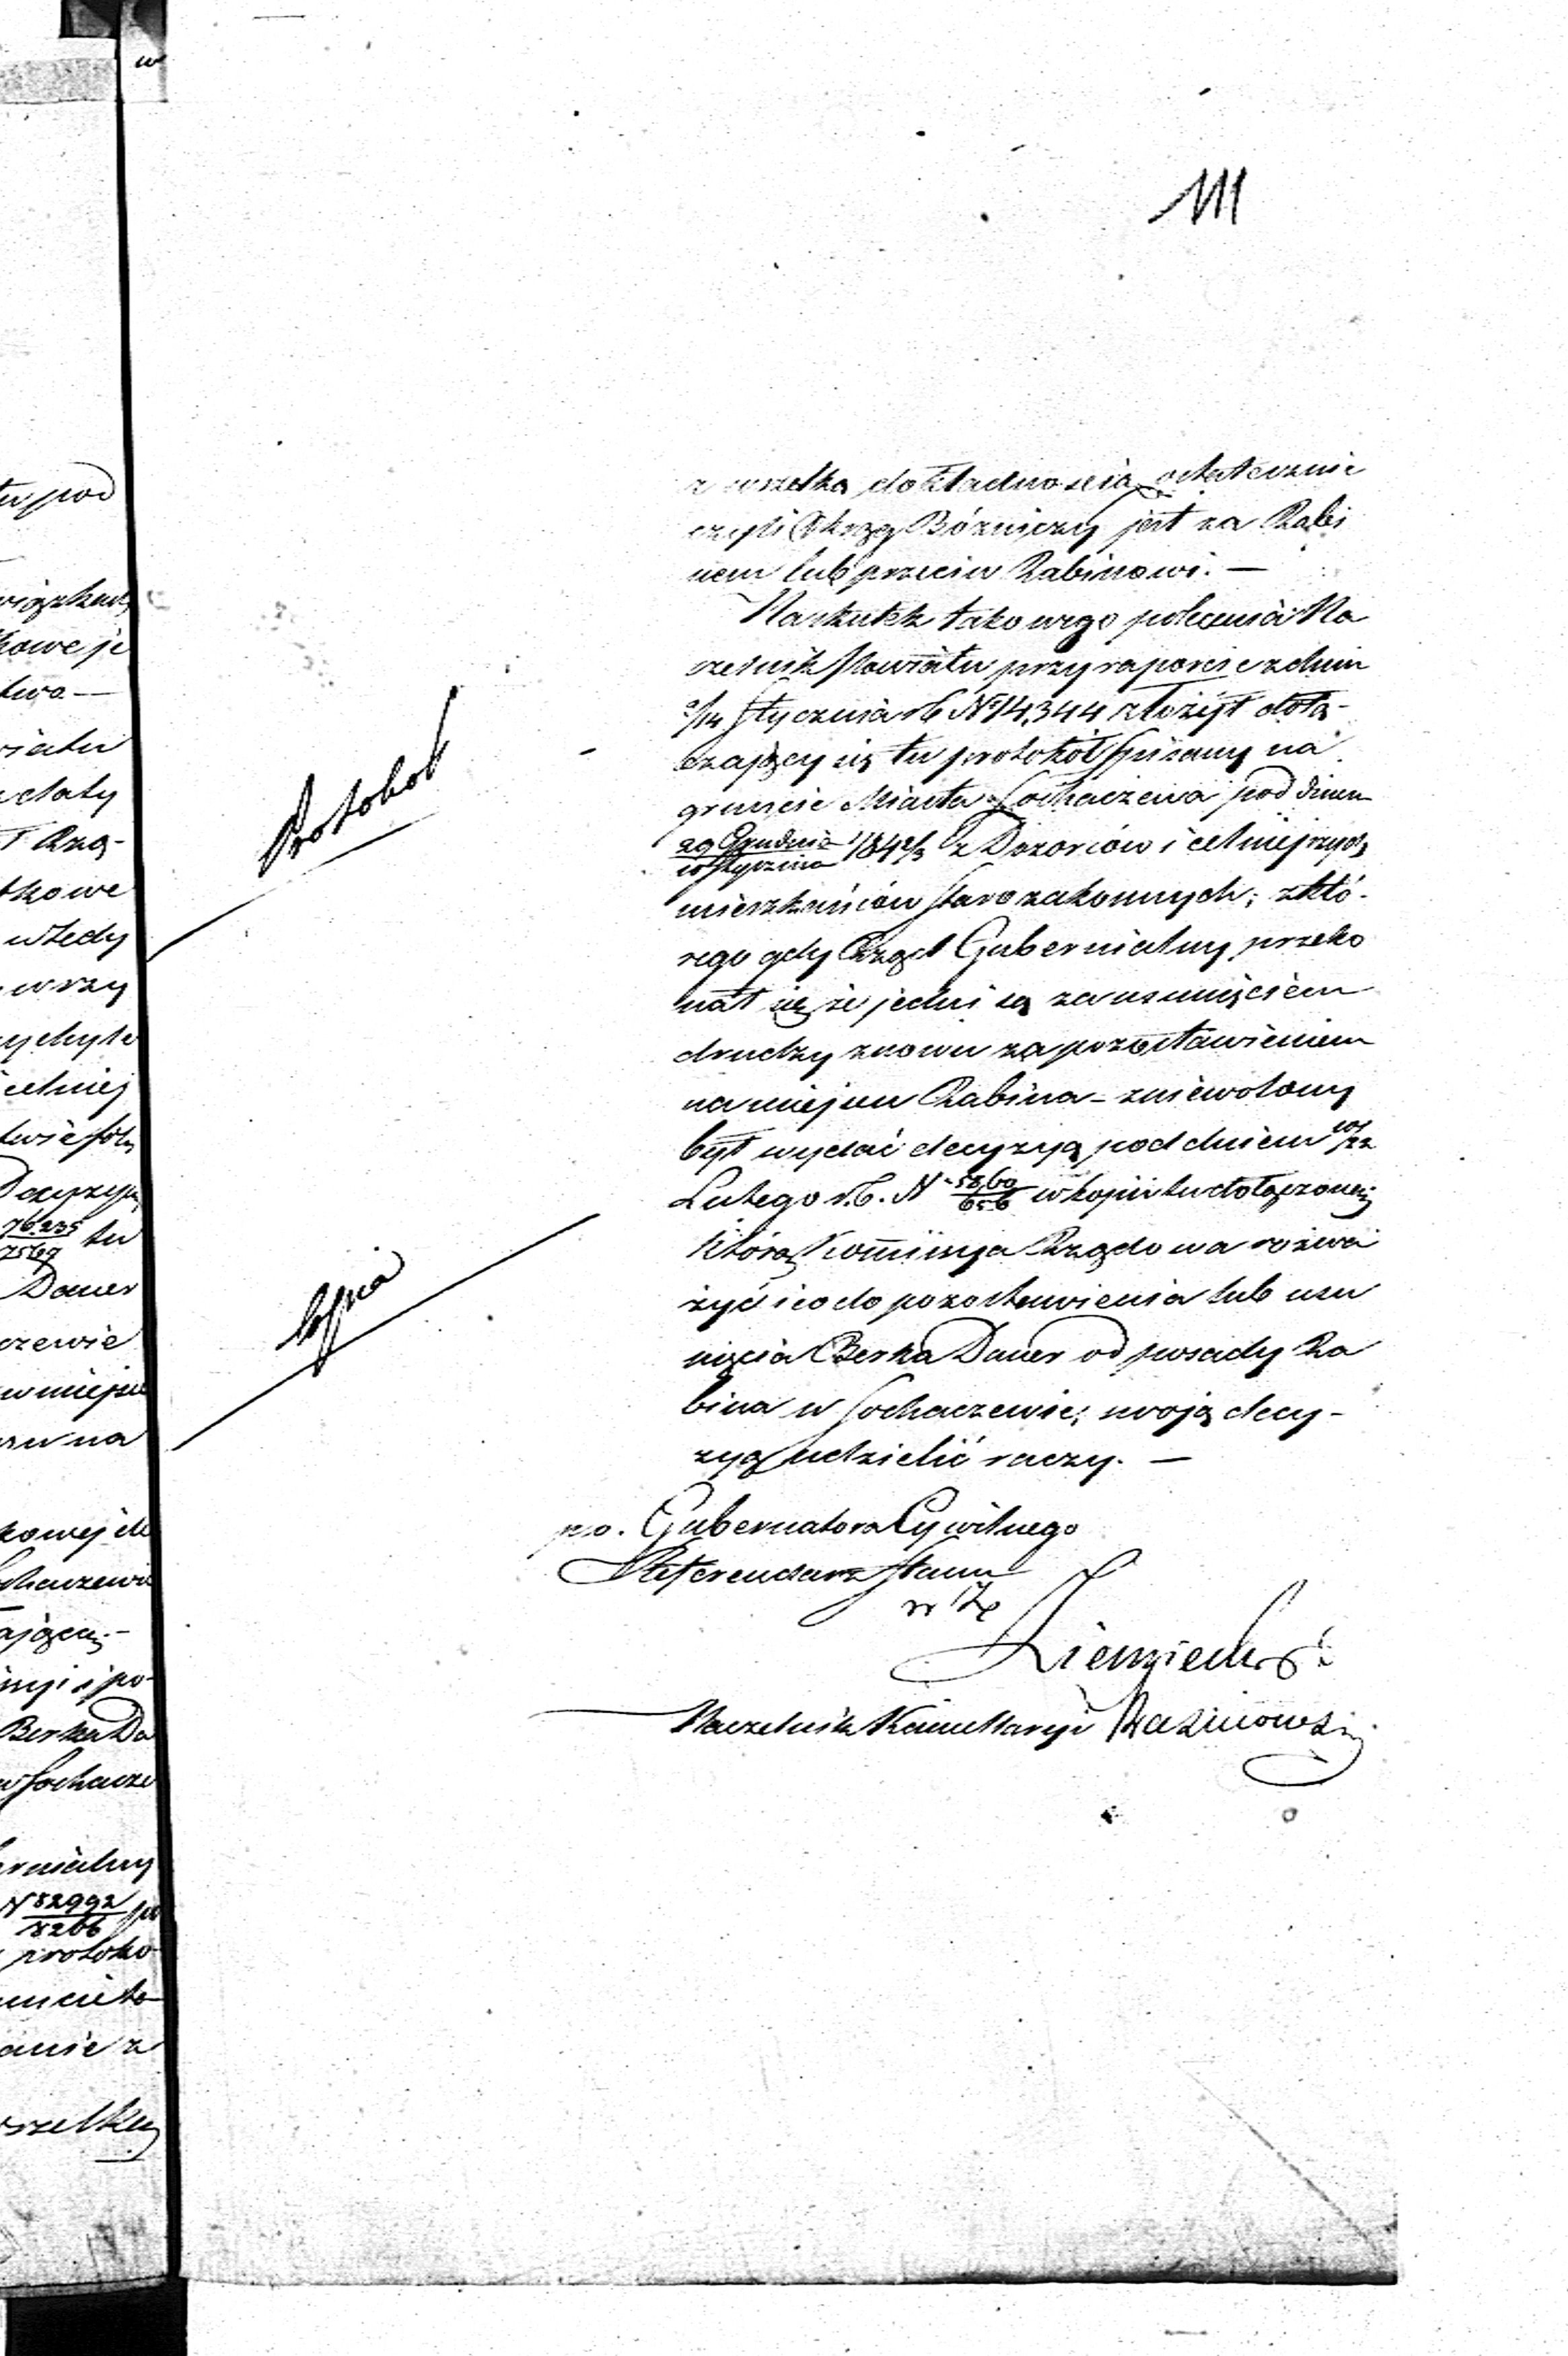 111
z wszelką dokładnością ostatecznie
czyli Okrąg Bóżniczy jest za Rabi
nem lub przeciw Rabinowi. —
Naskutek takowego polecenia Na
czelnik Powiatu przy raporcie z dnia
2/14 Stycznia rb N 14,344 złożył dołą-
czający się tu protokół spisany na
Protokoł
gruncie Miasta Sochaczewa pod dniem
29 Grudnia / 10 Stycznia 1842/3 z Dozorców i celniejszych
mieszkańców Starozakonnych; z któ-
rego gdy Rząd Gubernialny przeko
nał się że jedni są za usunięciem
drudzy znowu za pozostawieniem
na miejscu Rabina - zniewolony
był wydać decyzyą pod dniem 10/22
Lutego r.b. N 5860/656 w kopii tu dołączonej
Kopia
którą Kommissya Rządowa rozwa
żyć i co do pozostawienia lub usu
nięcia Berka Dauer od posady Ra
bina w Sochaczewie; swoją decy-
zyą udzielić raczy. —
p.o. Gubernatora Cywilnego
Referendarz Stanu
Naczelnik Kancellaryi
tu pod
kowe je
two —
wiatu
daty
T Rzą-
tkowe
wtedy
wrzy
celniej
Decyzyą
76235
7567 tu
Dauer
czewie
w miejscu
na
Sochaczewie
Berka Da
w Sochacze
ernialny
N 82992
8266
protoko
anie z
wszelką